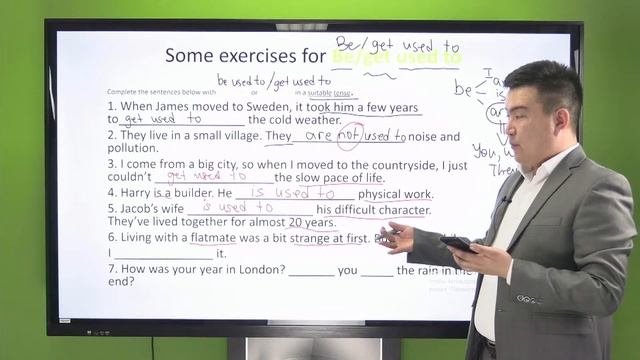 Be/get used to
Some exercises for Be/get used to
be used to/get used to
Complete the sentences below with or in a suitable tense.
1. When James moved to Sweden, it took him a few years
to get used to the cold weather.
2. They live in a small village. They are not used to noise and
pollution.
3. I come from a big city, so when I moved to the countryside, I just
couldn't get used to the slow pace of life.
4. Harry is a builder. He is used to physical work.
5. Jacob's wife is used to his difficult character.
They've lived together for almost 20 years.
6. Living with a flatmate was a bit strange at first.
I ____________ it.
7. How was your year in London? _______ you _____ the rain in the
end?
I
be
is
you,